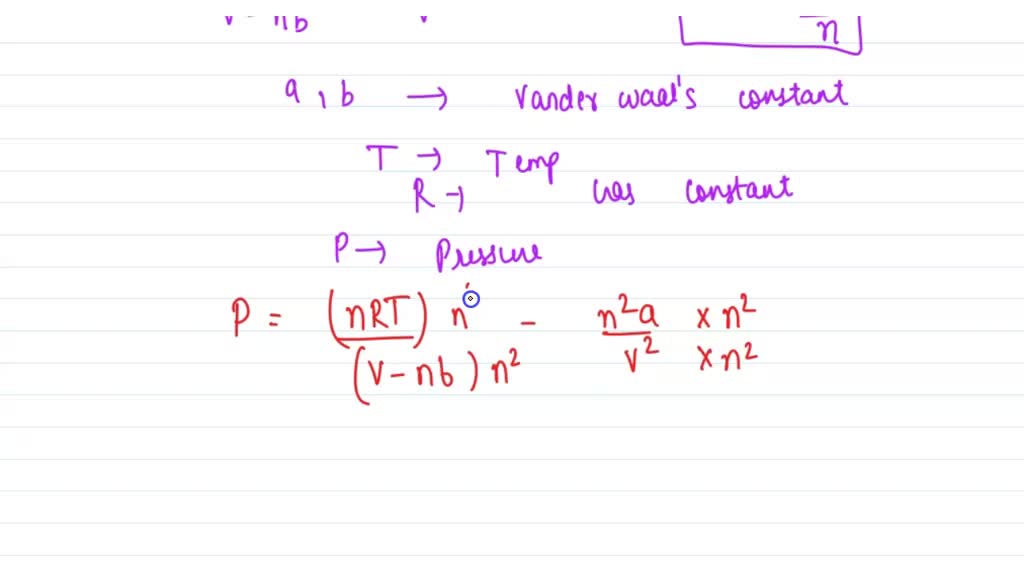 v - nb v n
a, b → Vander waal's constant
T → Temp
R → Gas constant
P → Pressure
P = (nRT) n - n²a × n²
(v - nb) n² v² × n²